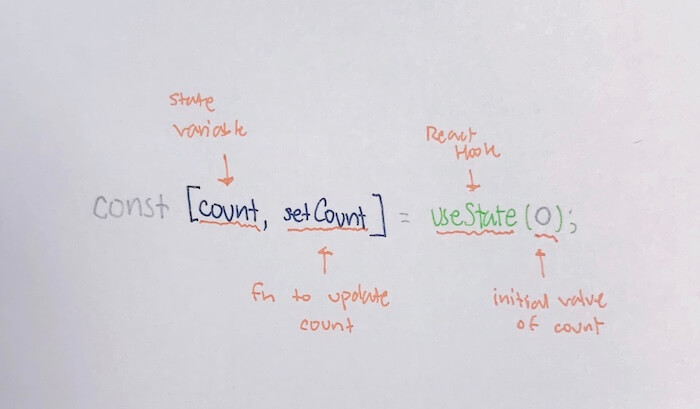 State
variable
React
Hook
const [count, setCount] = useState(0);
fn to update
count
initial value
of count